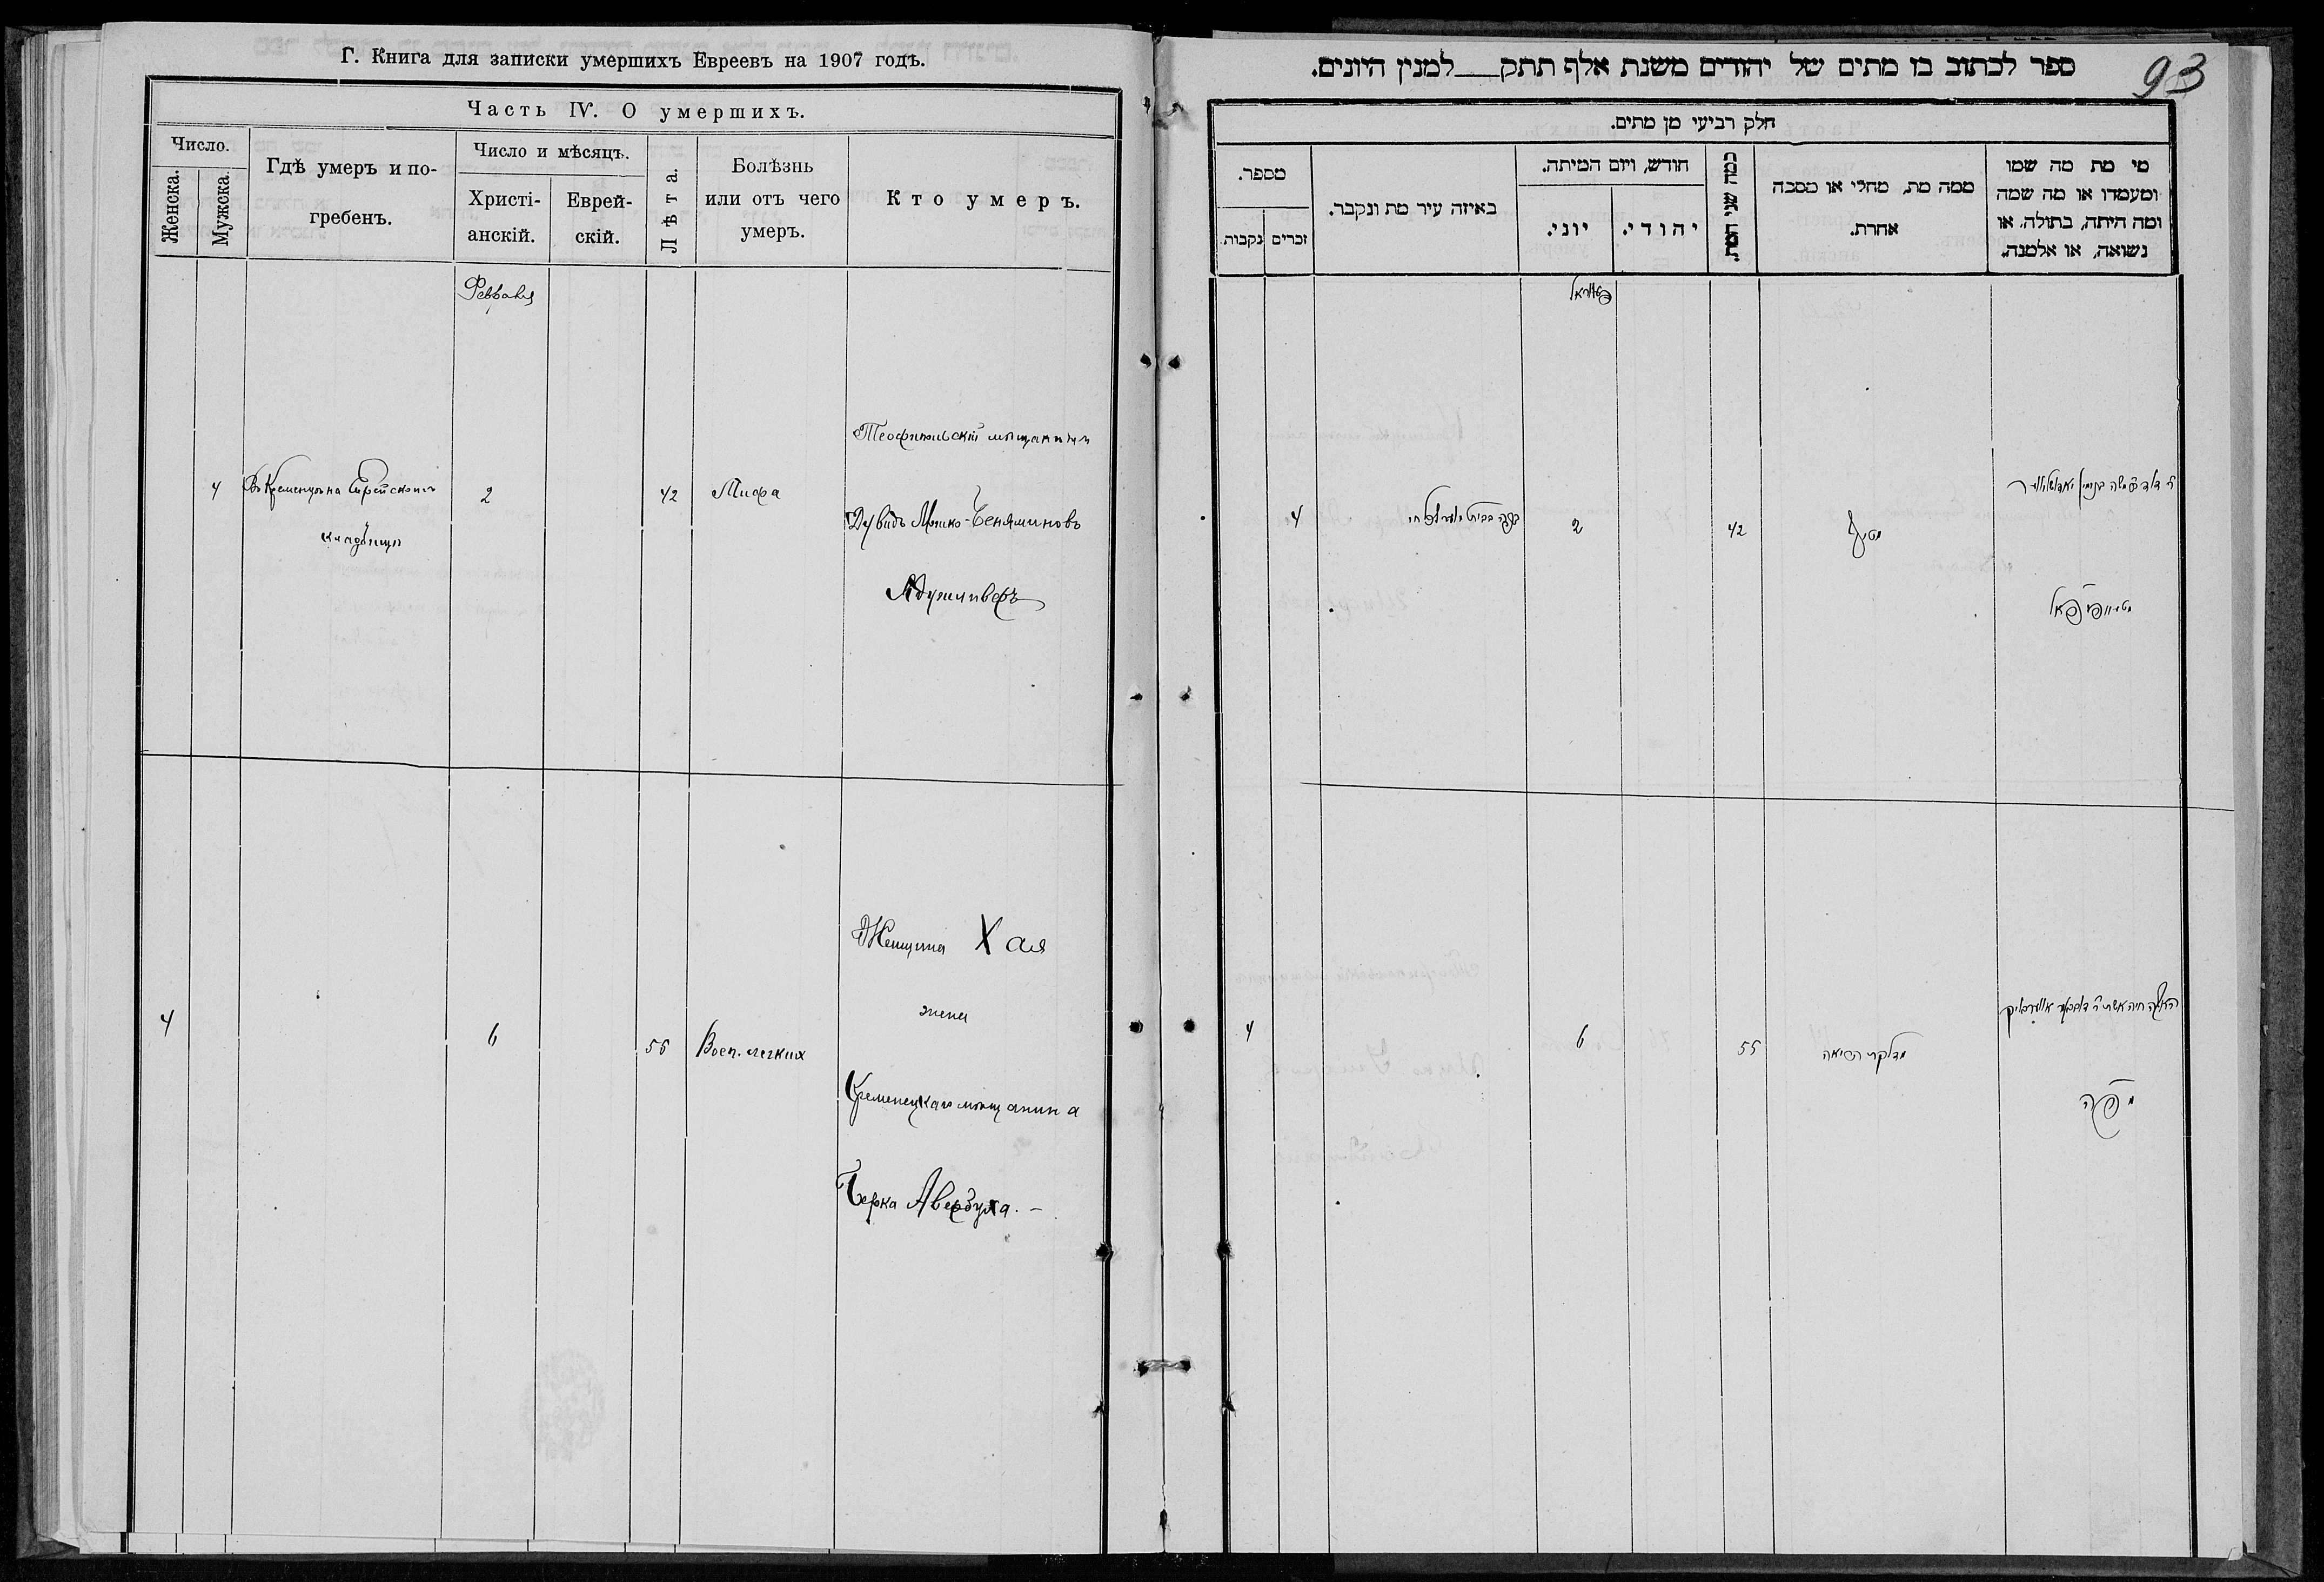 Г. Книга для записки умершихъ Евреевъ на 1907 годъ.
Часть IV. О умершихъ.
Число.
Женска.
Мужска.
Гдѣ умеръ и по-
гребенъ.
Число и мѣсяцъ.
Христі-
анскій.
Еврей-
скій.
Лѣта.
Болѣзнь
или отъ чего
умеръ.
Кто умеръ.
Февраля
4
Въ Кременцѣ на Еврейскомъ
кладбищѣ
2
42
Тифа
мѣщанинъ
Дувидъ Мошко-Беняминовъ
4
6
55
Восп. легкихъ
Женщина Хая
жена
Кременецкаго мѣщанина
Берка Авербуха. –
93
ספר לכתוב בו מתים של יהודים משנת אלף תתק___למנין היונים.
חלק רביעי מן מתים.
מספר.
נקבות
זכרים
באיזה עיר מת ונקבר.
חודש, ויום המיתה.
יוני.
יהודי.
כמה שני המת.
ממה מת, מחלי או מסבה
אחרת.
מי מת מה שמו
ומעמדו או מה שמה
ומה היתה, בתולה, או
נשואה, או אלמנה.
4
2
42
4
6
55
מדלקת הריאה